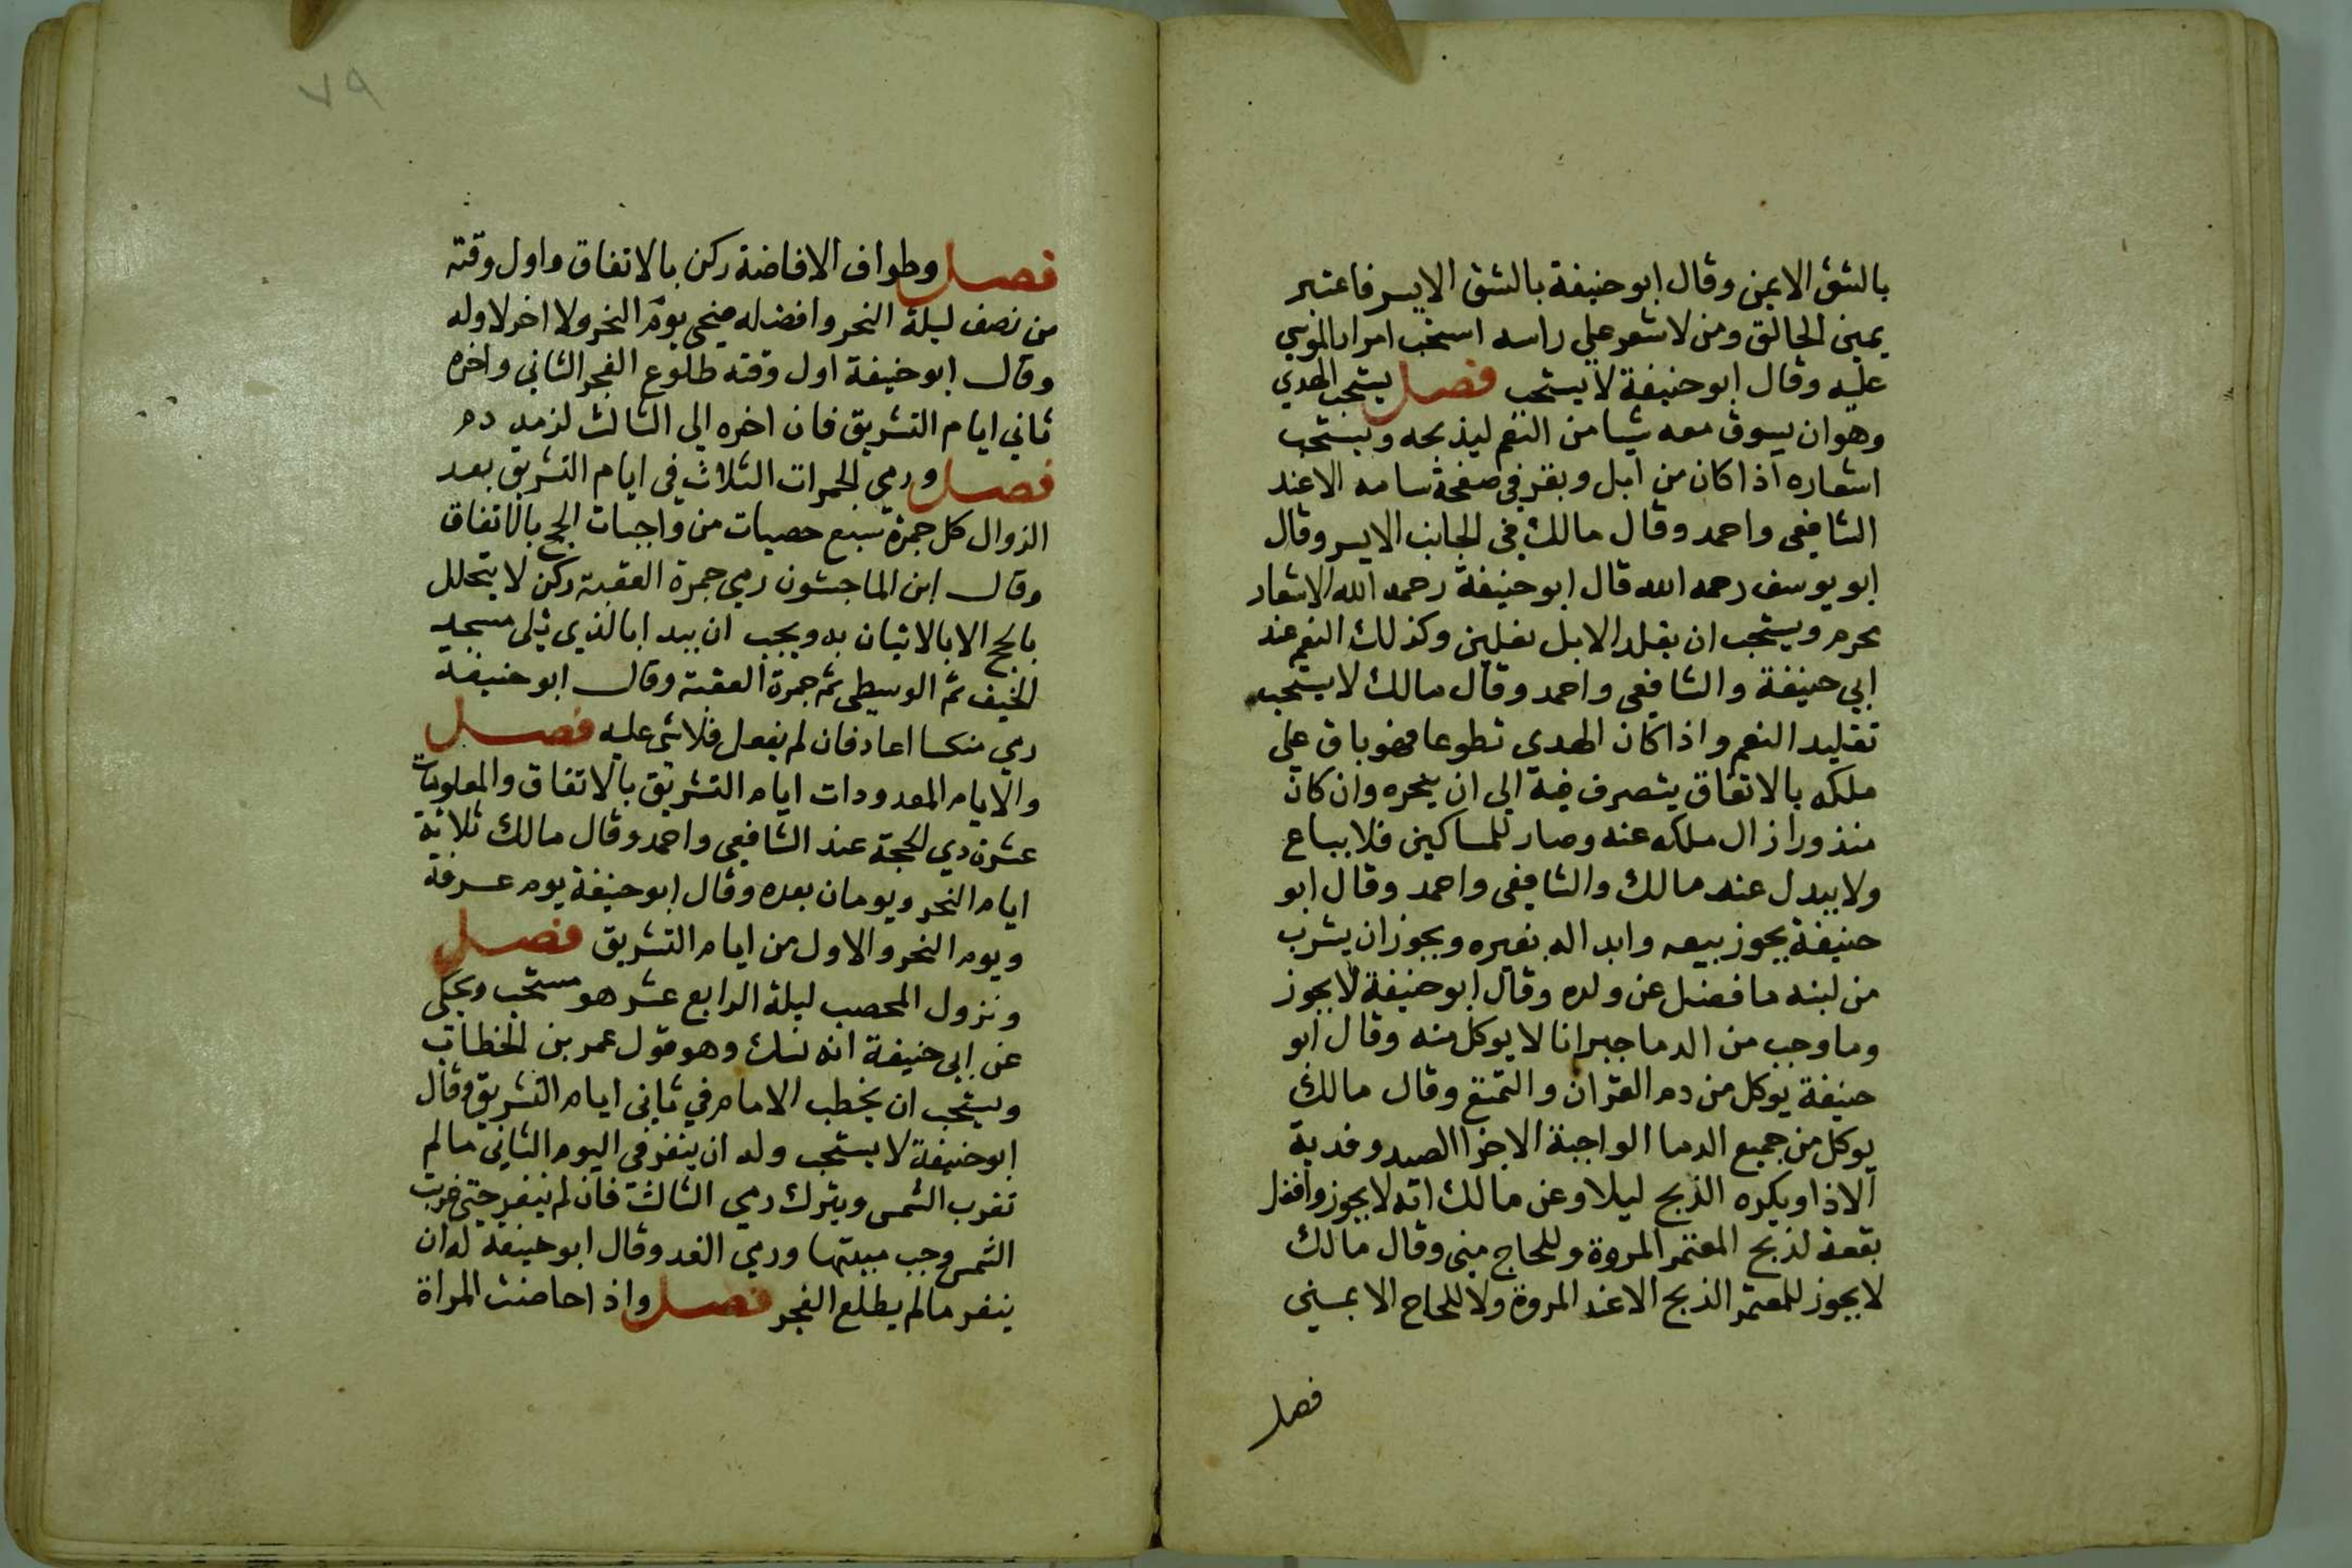 بالشق الايمن وقال ابو حنيفة بالشق الايسر فاعتبر
يمين الحالق ومن لا شعر علي راسه استحب امرار الموسي
عليه وقال ابو حنيفة لا يستحب فصل يستحب الهدي
وهو ان يسوق معه شيا من النعم ليذبحه ويستحب
اشعاره اذا كان من ابل وبقر في صفحة سنامه الا عند
الشافعي واحمد وقال مالك في الجانب الايسر وقال
ابو يوسف رحمه الله قال ابو حنيفة رحمه الله الاشعار
محرم ويستحب ان يقلد الابل نعلين وكذلك النعم عند
ابي حنيفة والشافعي واحمد وقال مالك لا يستحب
تقليد النعم واذا كان الهدي تطوعا فهو باق علي
ملكه بالاتفاق يتصرف فيه الي ان ينحره وان كان
منذورا زال ملكه عنه وصار للمساكين فلا يباع
ولا يبدل عند مالك والشافعي واحمد وقال ابو
حنيفة يجوز بيعه وابداله بغيره ويجوز ان يشرب
من لبنه ما فضل عن ولده وقال ابو حنيفة لا يجوز
وما وجب من الدما جبرانا لا يوكل منه وقال ابو
حنيفة يوكل من دم القران والتمتع وقال مالك
يوكل من جميع الدما الواجبة الا جزا الصيد وفدية
الاذا ويكره الذبح ليلا وعن مالك انه لا يجوز وافضل
بقعة لذبح المعتمر المروة وللحاج منى وقال مالك
لا يجوز للمعتمر الذبح الا عند المروة ولا للحاج الا بمنى
فصل
٧٩
فصل وطواف الافاضة ركن بالاتفاق واول وقته
من نصف ليلة النحر وافضله ضحى يوم النحر ولا اخر لاوله
وقال ابو حنيفة اول وقته طلوع الفجر الثاني واخره
ثاني ايام التشريق فان اخره الي الثالث لزمه دم
فصل ورمي الجمرات الثلاث في ايام التشريق بعد
الزوال كل جمرة سبع حصيات من واجبات الحج بالاتفاق
وقال ابن الماجشون رمي جمرة العقبة ركن لا يتحلل
بالحج الا بالاتيان به ويجب ان يبدا بالذي تلي مسجد
الخيف ثم الوسطي ثم جمرة العقبة وقال ابو حنيفة
رمي منكسا اعاد فان لم يفعل فلا شي عليه فصل
والايام المعدودات ايام التشريق بالاتفاق والمعلومات
عشر ذي الحجة عند الشافعي واحمد وقال مالك ثلاثة
ايام النحر ويومان بعده وقال ابو حنيفة يوم عرفة
ويوم النحر والاول من ايام التشريق فصل
ونزول المحصب ليلة الرابع عشر هو مستحب ويحكى
عن ابي حنيفة انه نسك وهو قول عمر بن الخطاب
ويستحب ان يخطب الامام في ثاني ايام التشريق وقال
ابو حنيفة لا يستحب وله ان ينفر في اليوم الثاني ما لم
تغرب الشمس ويترك رمي الثالث فان لم ينفر حتى غربت
الشمس وجب مبيتها ورمي الغد وقال ابو حنيفة له ان
ينفر ما لم يطلع الفجر فصل واذا حاضت المراة